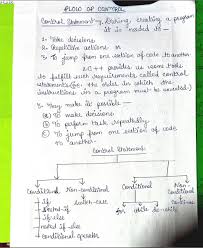 FLOW OF CONTROL
Control Statement:- During creating a program
it is needed to -
1- Take decisions
2- Repetitive actions or
3- To jump from one section of code to another
C++ provides us some tools
to fulfill such requirements called control
statements (i.e. the order in which the
instructions in a program must be executed)
They make it possible -
(a) To make decisions
(b) To perform task repeatedly
(c) To jump from one section of code
to another.
Control Statement
Conditional Non-conditional Conditional Non-conditional
if switch-case for while do-while
nested-if
if-else
nested if-else
conditional operator